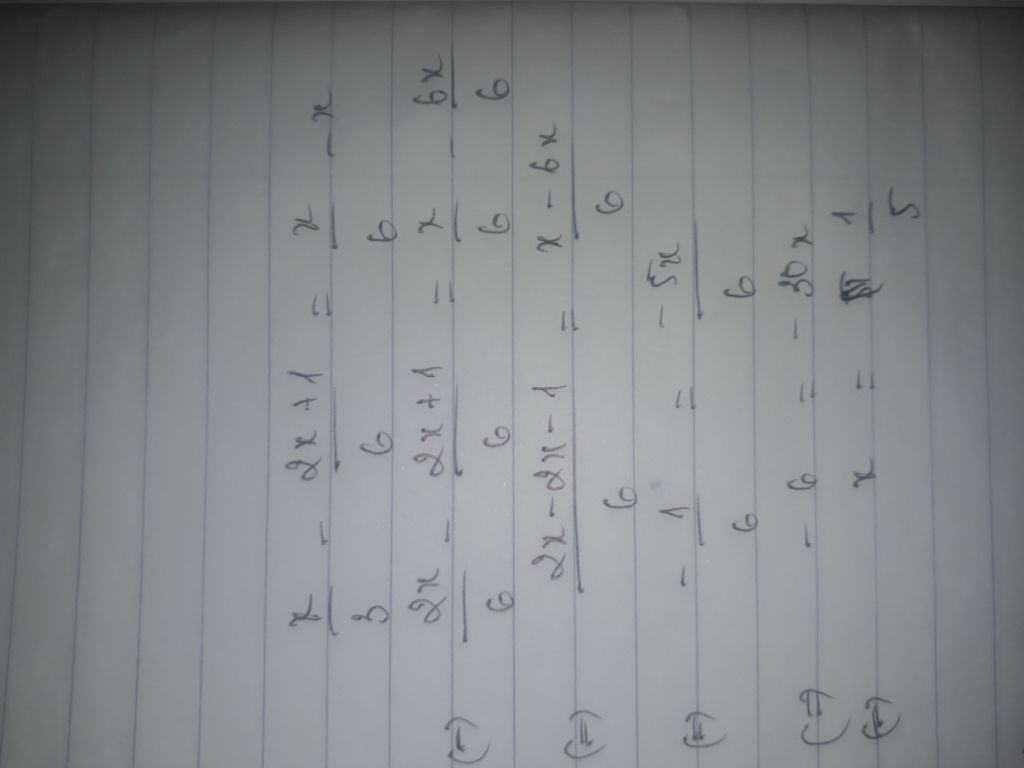 x/3 - 2x+1/6 = x/6 - x
(=) 2x/6 - 2x+1/6 = x/6 - 6x/6
(=) 2x-2x-1/6 = x-6x/6
(=) -1/6 = -5x/6
(=) -6 = -30x
(=) x = 1/5